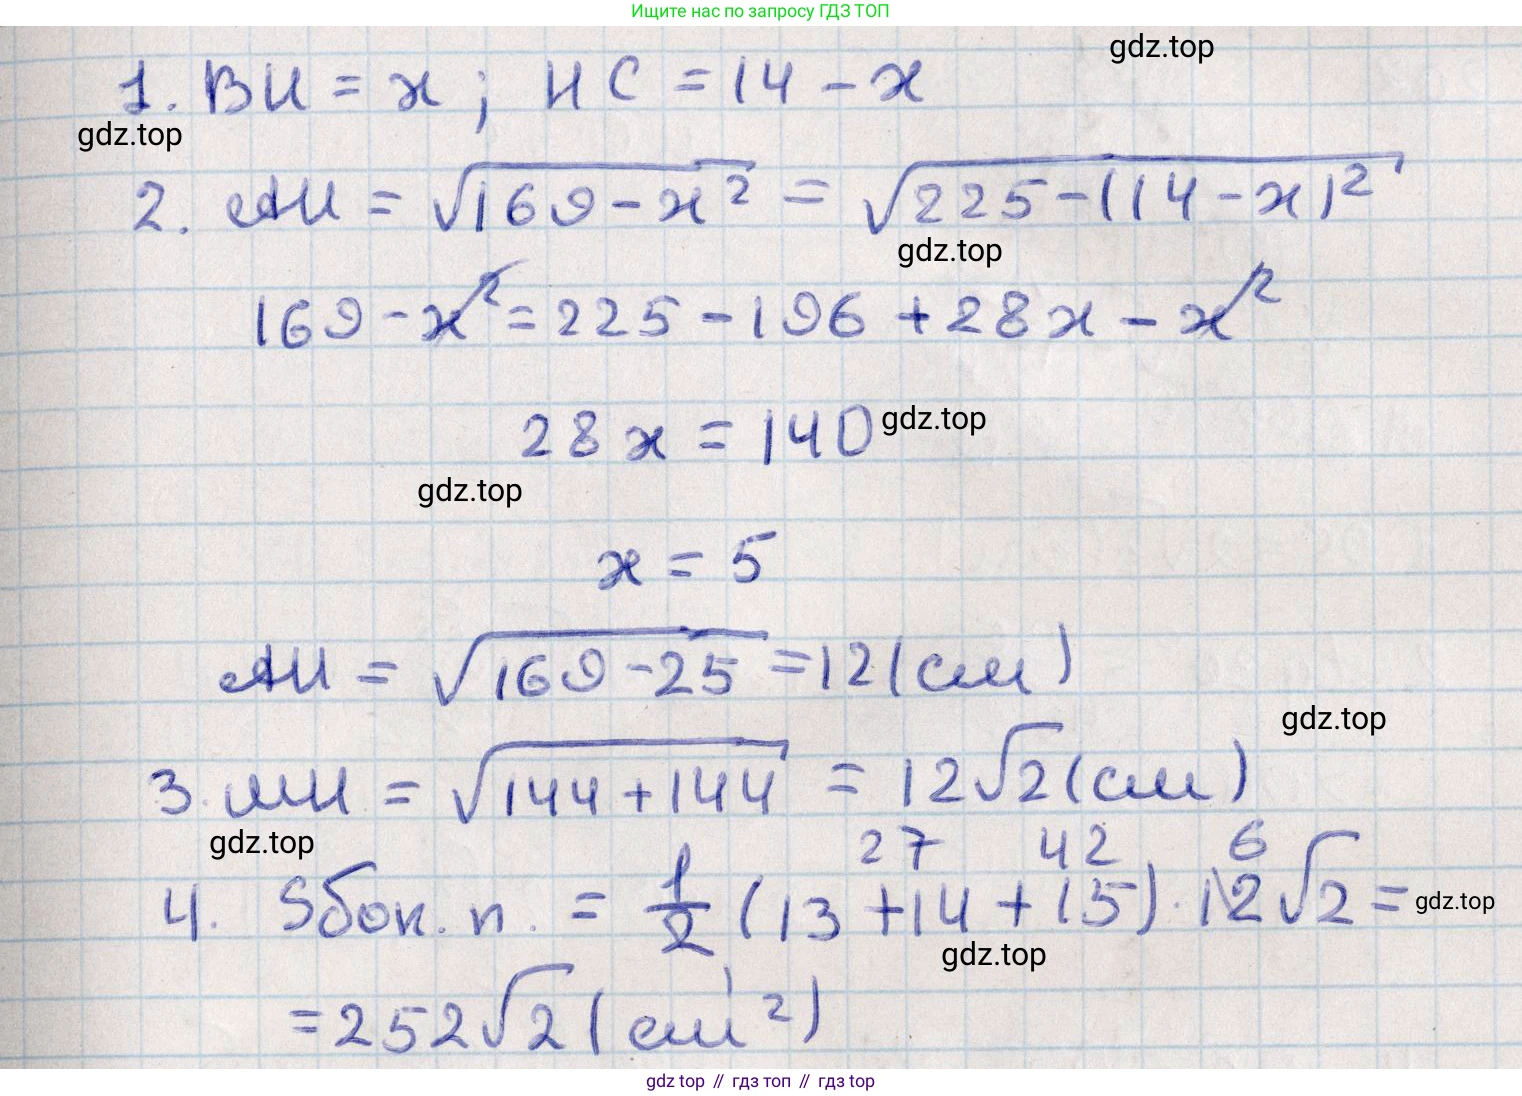 Ищите нас по запросу ГДЗ ТОП
gdz.top
1. BH = x ; HC = 14 - x
gdz.top
2. AH = √(169 - x²) = √(225 - (14 - x)²)
gdz.top
169 - x² = 225 - 196 + 28x - x²
28x = 140
gdz.top
gdz.top
x = 5
AH = √(169 - 25) = 12 (см)
gdz.top
3. MH = √(144 + 144) = 12√2 (см)
gdz.top
27 42 6
4. Sбок. п. = 1/2 (13 + 14 + 15) · 12√2 =
gdz.top
gdz.top
= 252√2 (см²)
gdz top // гдз топ // гдз top